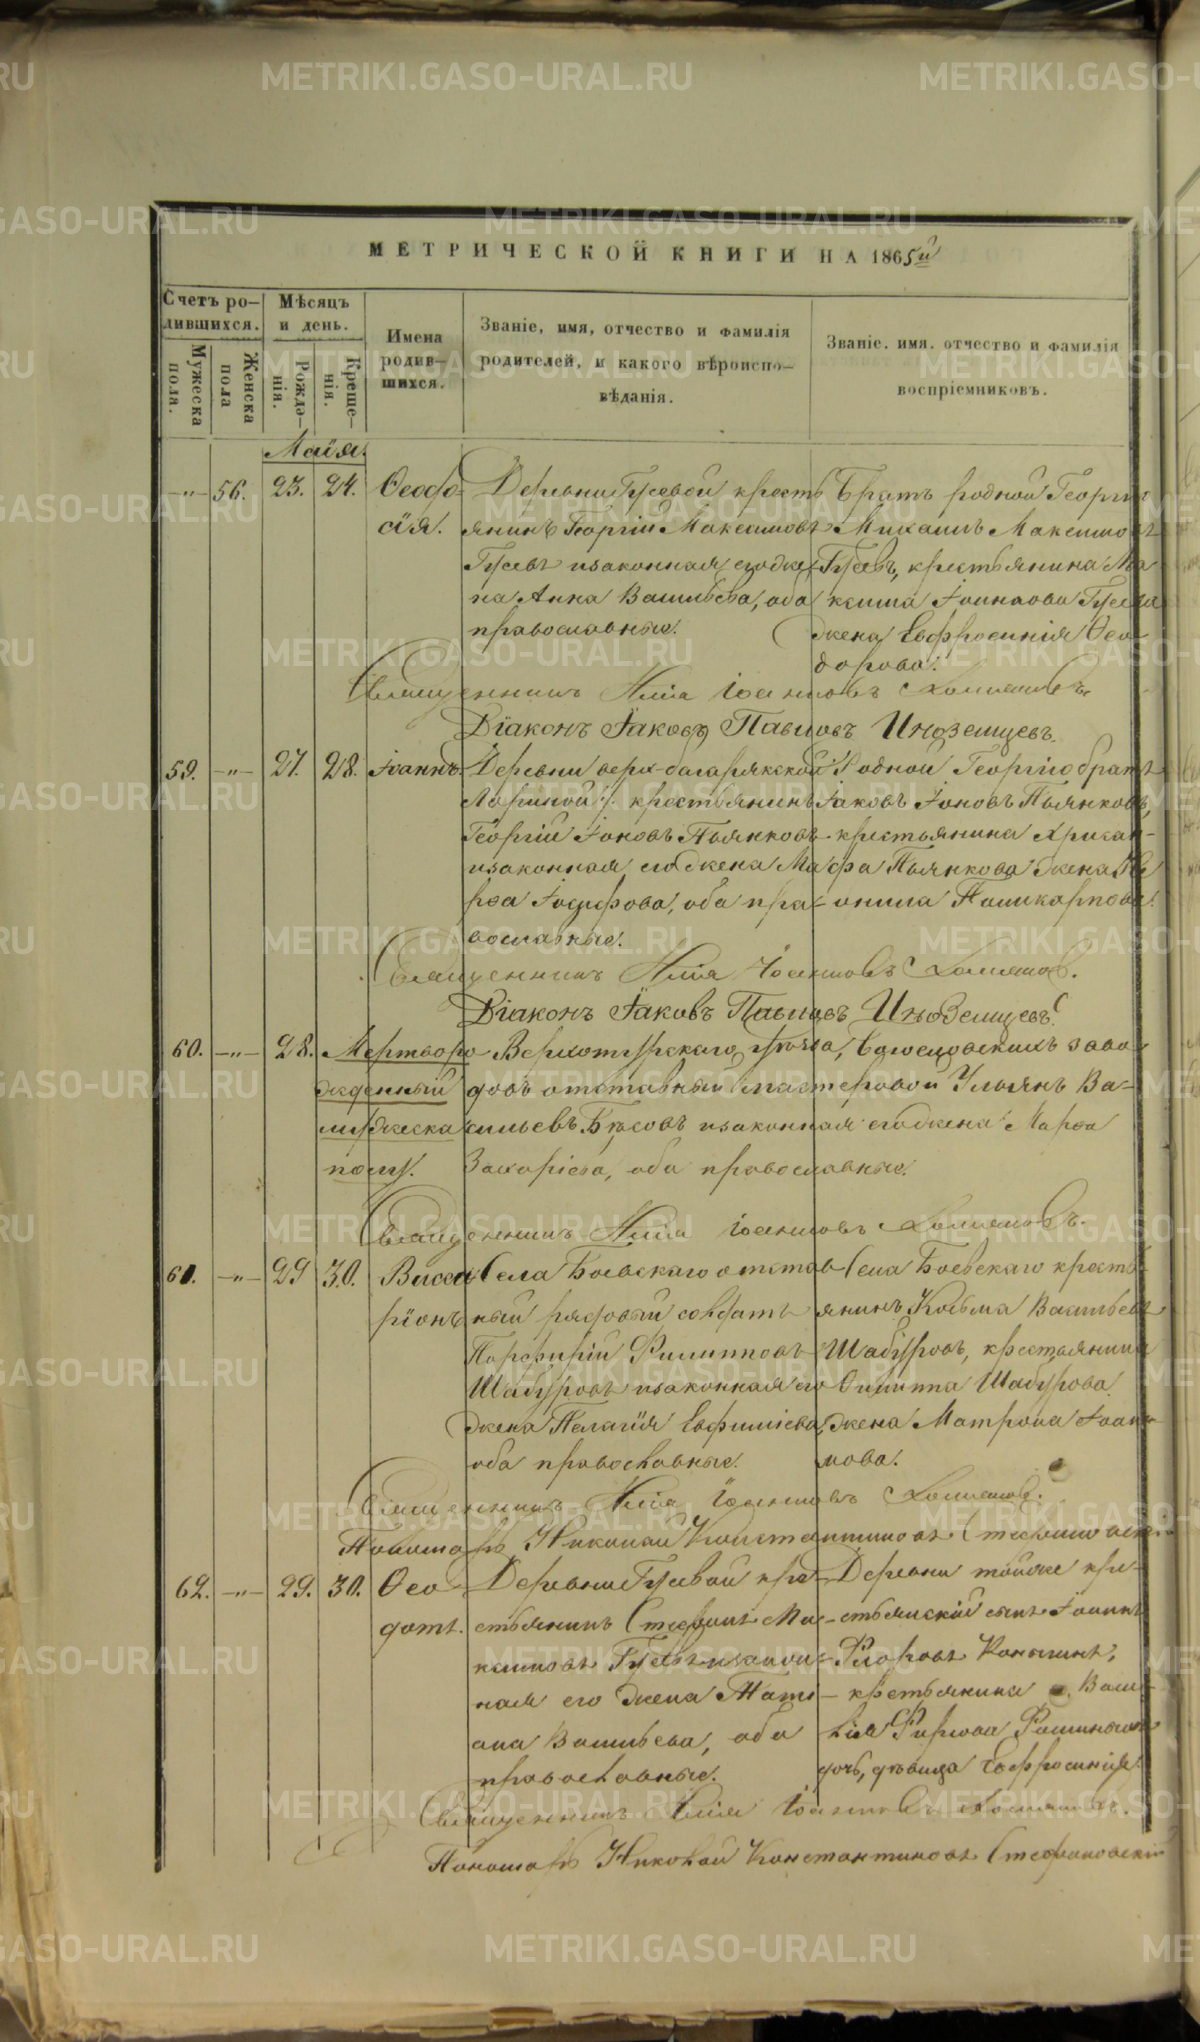 МЕТРИЧЕСКОЙ КНИГИ НА 1865й
Счетъ ро-
дившихся.
Мѣсяцъ
и день.
Имена
родив-
шихся.
Званіе, имя, отчество и фамилія
родителей, и какого вѣроиспо-
вѣданія.
Званіе. имя. отчество и фамилія
воспріемниковъ.
Мужеска
пола.
Женска
пола
Рожде-
нія.
Креще-
нія.
Маія.
-"- 56. 23. 24. Ѳеодо-
сія.
Деревни Гусевой кресть
янинъ Георгій Максимовъ
Гусевъ изаконная егожее
на Анна Васильева, оба
православные.
Братъ родной Георгія
Михаилъ Максимовъ
Гусевъ, крестьянина Ма
ксима Іоаннова Гусева
жена Евфросинія Ѳео-
дорова.
Священникъ Илія Іоанновъ
Діаконъ Іаковъ Павловъ Иноземцевъ.
59. -"- 27. 28. Іоаннъ.
Деревни верх-багарякской
крестьянинъ
Георгій Іоновъ Пьянковъ
изаконная егожена Ма
рѳа Іосифова, оба пра-
вославные.
Родной Георгію братъ
Іаковъ Іоновъ Пьянковъ,
крестьянина Хрисан-
фа Пьянкова жена
Поликарпова.
Священникъ Илія Іоанновъ
Діаконъ Іаковъ Павловъ Иноземцевъ.
60. -"- 28. Мертворо
жденный
мужеска
полу.
Верхотурскаго уѣзда, Богословскихъ заво-
довъ отставный мастеровой Ульянъ Ва-
сильевъ изаконная егожена Марѳа
Захаріева, оба православные.
Священникъ Илія Іоанновъ
61. -"- 29 30. Висса
ріонъ
Села Боевскаго отстав
ный рядовый солдатъ
Порфирій Филипповъ
Шабуровъ изаконная его
жена Пелагія Евфиміева,
оба православные.
Села Боевскаго кресть
янинъ Козьма Васильевъ
Шабуровъ, крестьянина
Филиппа Шабурова
жена Матрона Іоан-
нова.
Священникъ Илія Іоанновъ
Пономарь Николай Константиновъ Стефановскій
62. -"- 29. 30. Ѳео
дотъ.
Деревни Гусевой кре-
стьянинъ Стефанъ Ма-
ксимовъ Гусевъ изакон-
ная его жена Тати-
ана Васильева, оба
православные.
Деревни тойже кре-
стьянскій сынъ Іоаннъ
Флоровъ
крестьянина Васи-
лія Фирсова
дочь, дѣвица Евфросинія.
Священникъ Илія Іоанновъ
Пономарь Николай Константиновъ Стефановскій
METRIKI.GASO-URAL.RU